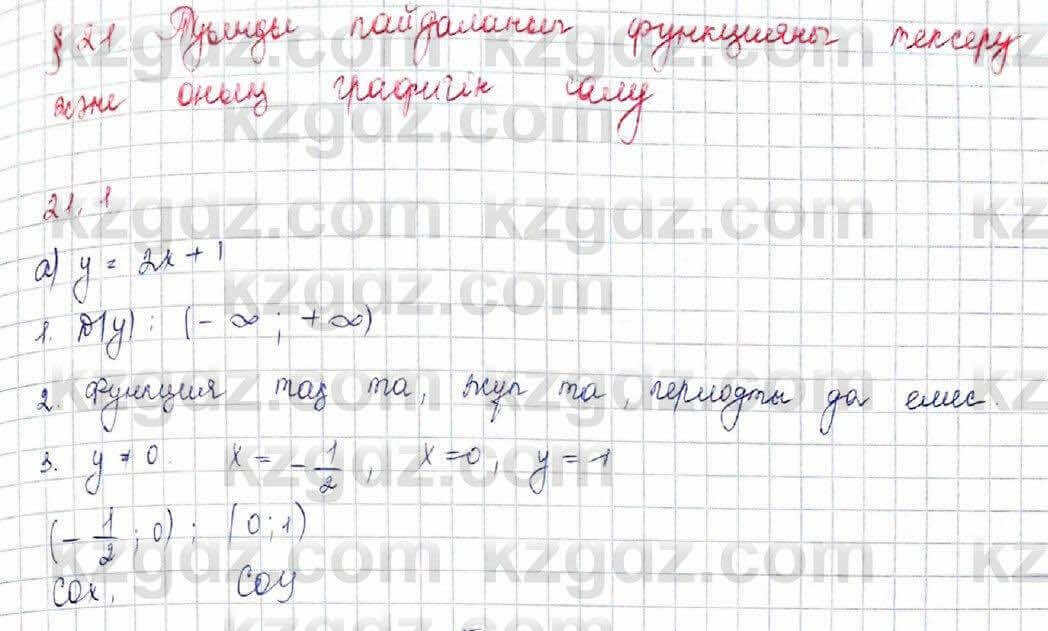 § 21 Туынды пайдаланып функцияны тексеру
және оның графигін салу
21.1
а) y = 2x + 1
1. D(y): (-∞; +∞)
2. Функция тақ та, жұп та, периодты да емес.
3. y = 0. x = -1/2, x = 0, y = 1
(-1/2; 0); (0; 1)
COX, COY
kzgdz.com